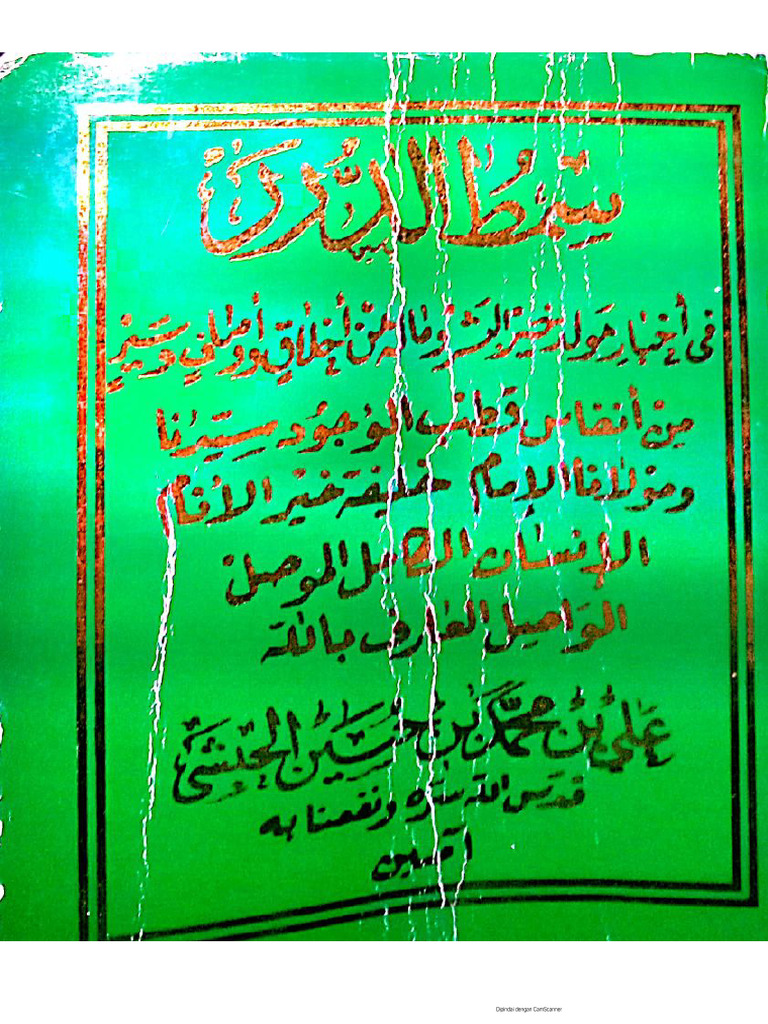 سمط الدرر
في أخبار مولد خير البشر وما له من أخلاق وأوصاف وسير
من أنفاس قطب الوجود سيدنا
ومولانا الإمام خليفة خير الأنام
الإنسان الكامل الموصل
الواصل العارف بالله
علي بن محمد بن حسين الحبشي
قدس الله سره ونفعنا به
آمين
Dipindai dengan CamScanner